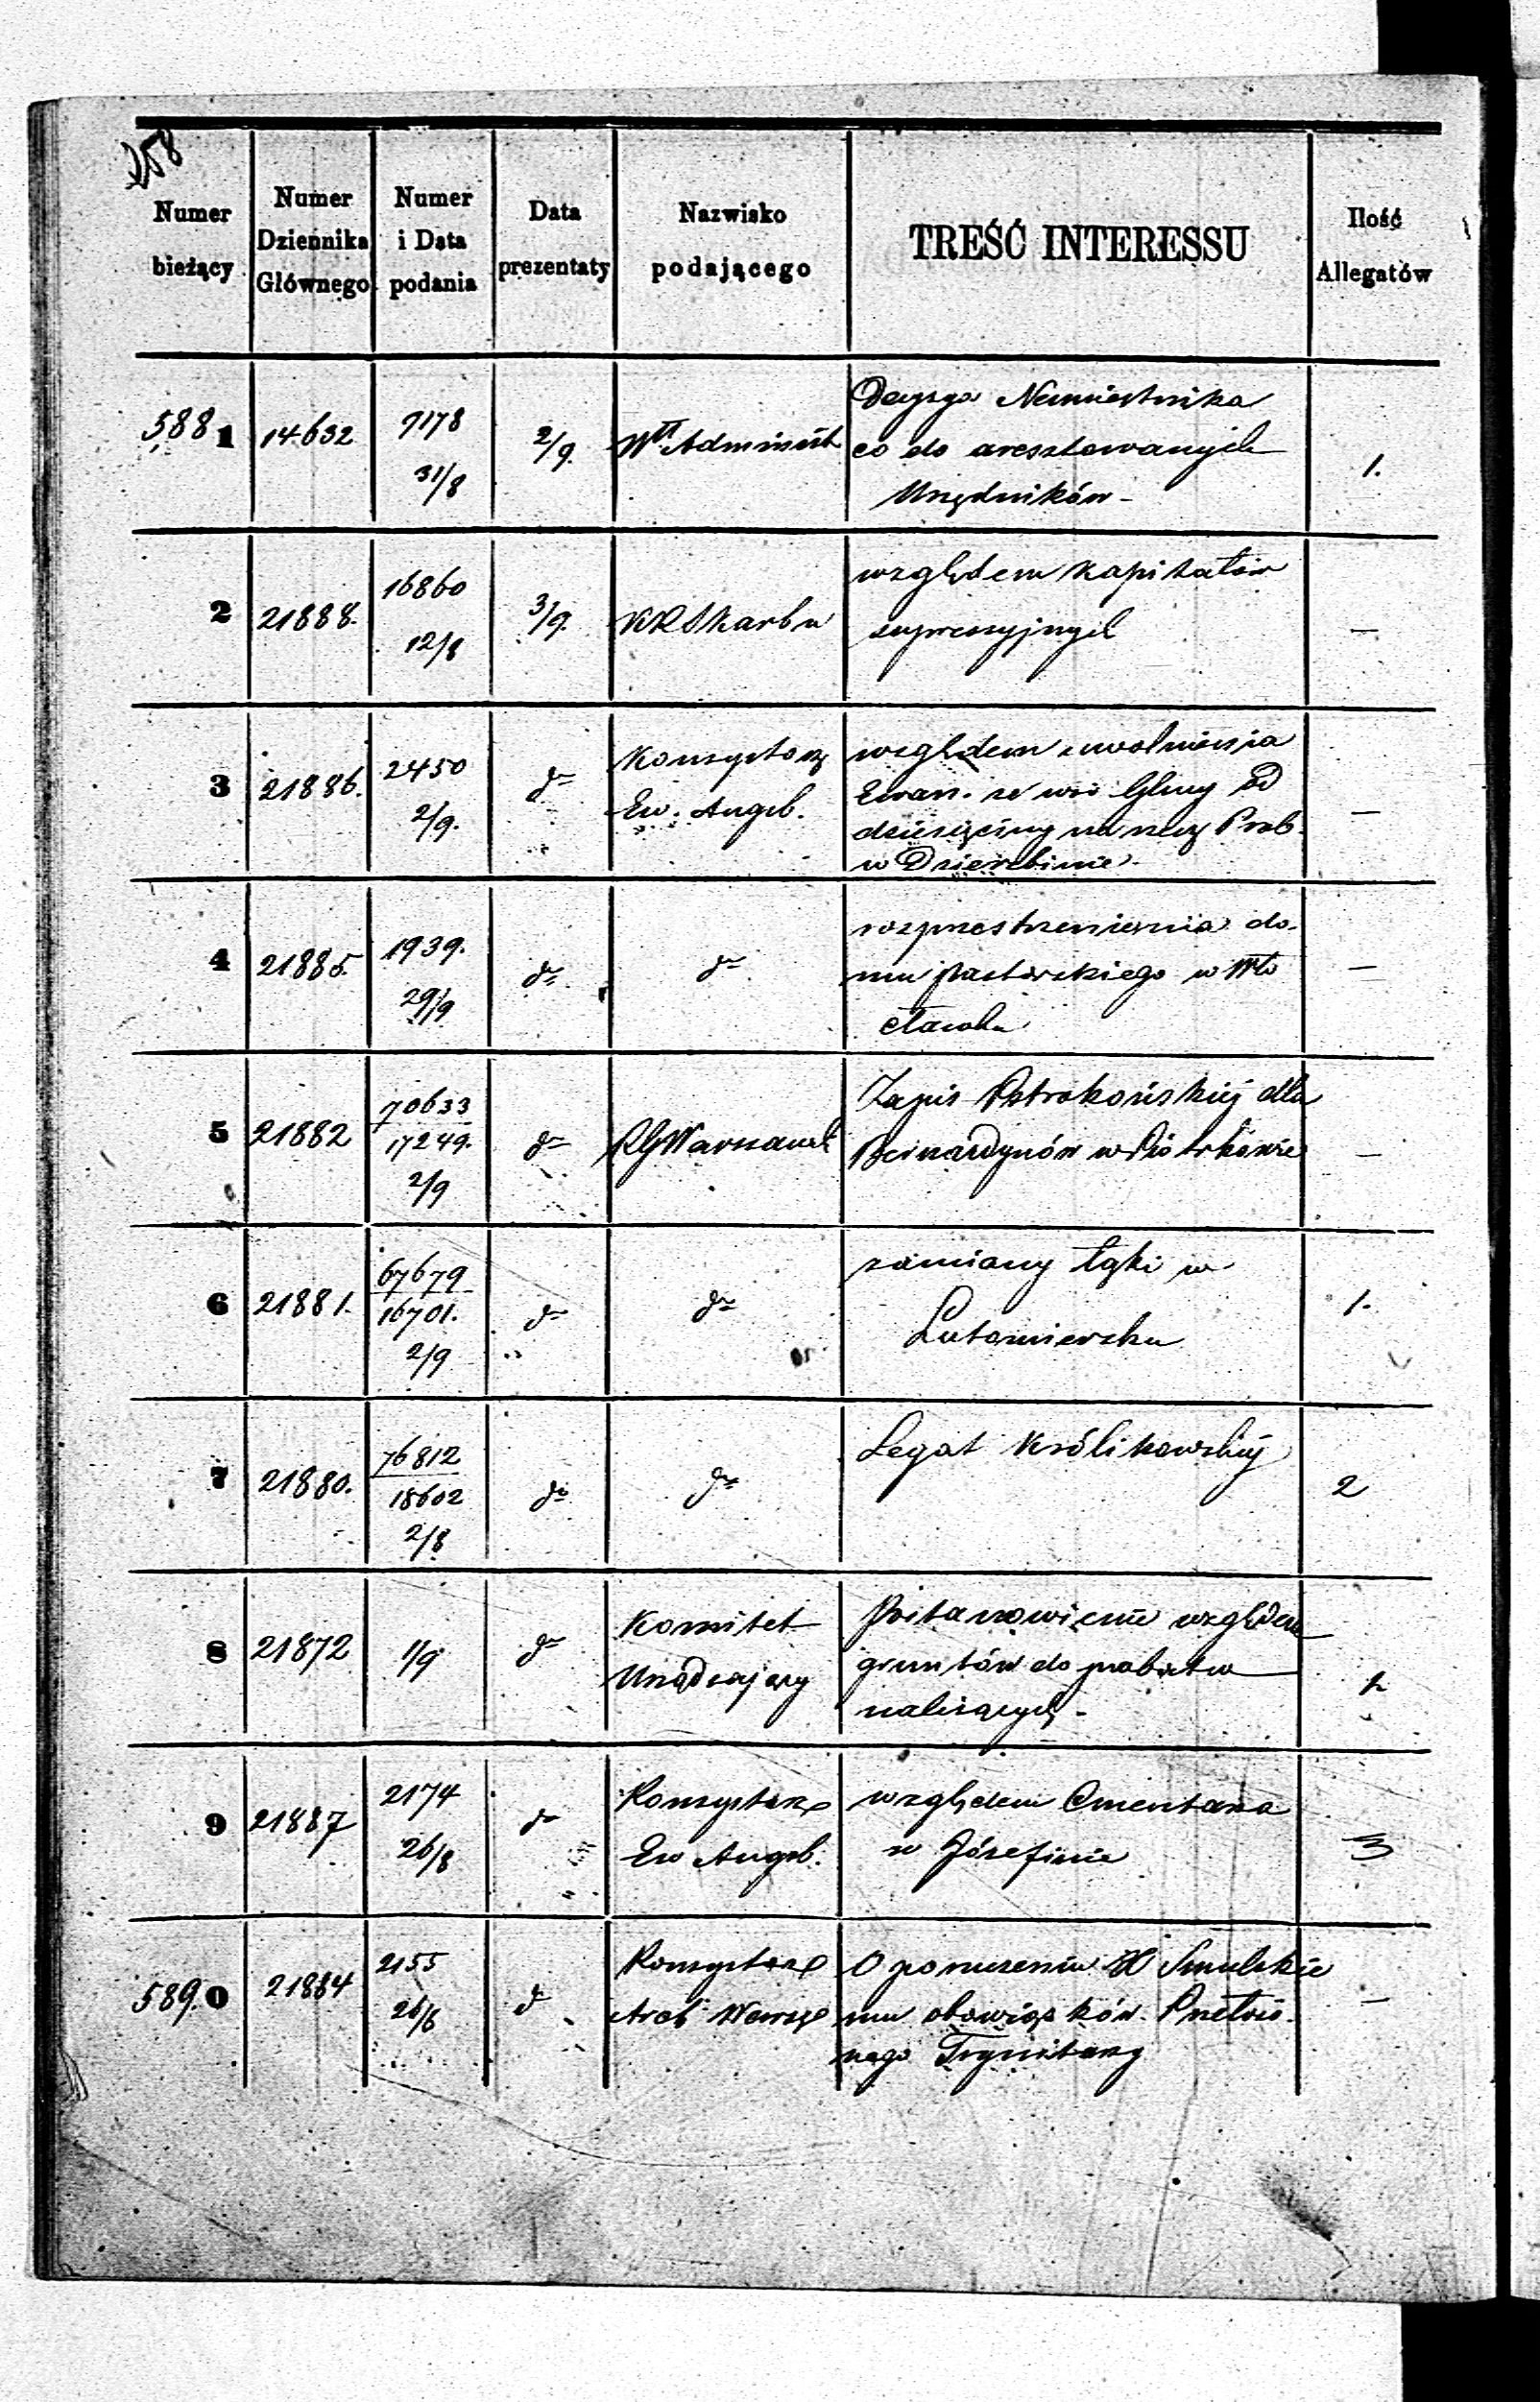 258
Numer bieżący | Numer Dziennika Głównego | Numer i Data podania | Data prezentaty | Nazwisko podającego | TREŚĆ INTERESSU | Ilość Allegatów
5881 | 14632 | 7178 31/8 | 2/9. | Wł Administ | Decyzya Namiestnika
co do aresztowanych
Urzędników - | 1.
2 | 21888. | 16860 12/8 | 3/9. | KRSkarbu | względem kapitałów
supressyjnych | —
3 | 21886. | 2450 2/9. | do | Konsystorz Ew. Augsb. | względem uwolnienia
Ewan. ze wsi Gliny od
dziesięciny na rzecz Prob.
w Dzierzbinie. | —
4 | 21885. | 1939. 29/9 | do | do | rozprzestrzenienia do-
mu pastorskiego w Wło
cławku | —
5 | 21882 | 70633 17249. 2/9 | do | RGWarszawsk | Zapis Pstrokońskiej dla
Bernardynów w Piotrkowie | —
6 | 21881. | 67679 16701. 2/9 | do | do | zamiany łąki w
Lutomiersku | 1.
7 | 21880. | 76812 18602 2/8 | do | do | Legat Królikowskiej | 2
8 | 21872 | 1/9 | do | Komitet Urządzający | Postanowienie względem
gruntów do probostw
należących -
9 | 21887 | 2174 26/8 | do | Konsystorz Ew Augsb. | względem Cmentarza
w Józefinie | 3
5890 | 21884 | 2155 26/8 | d | Konsystorz Arch Warsz | O poruczeniu X Smulskie
mu obowiązków Przełożo-
nego Trynitarzy | —